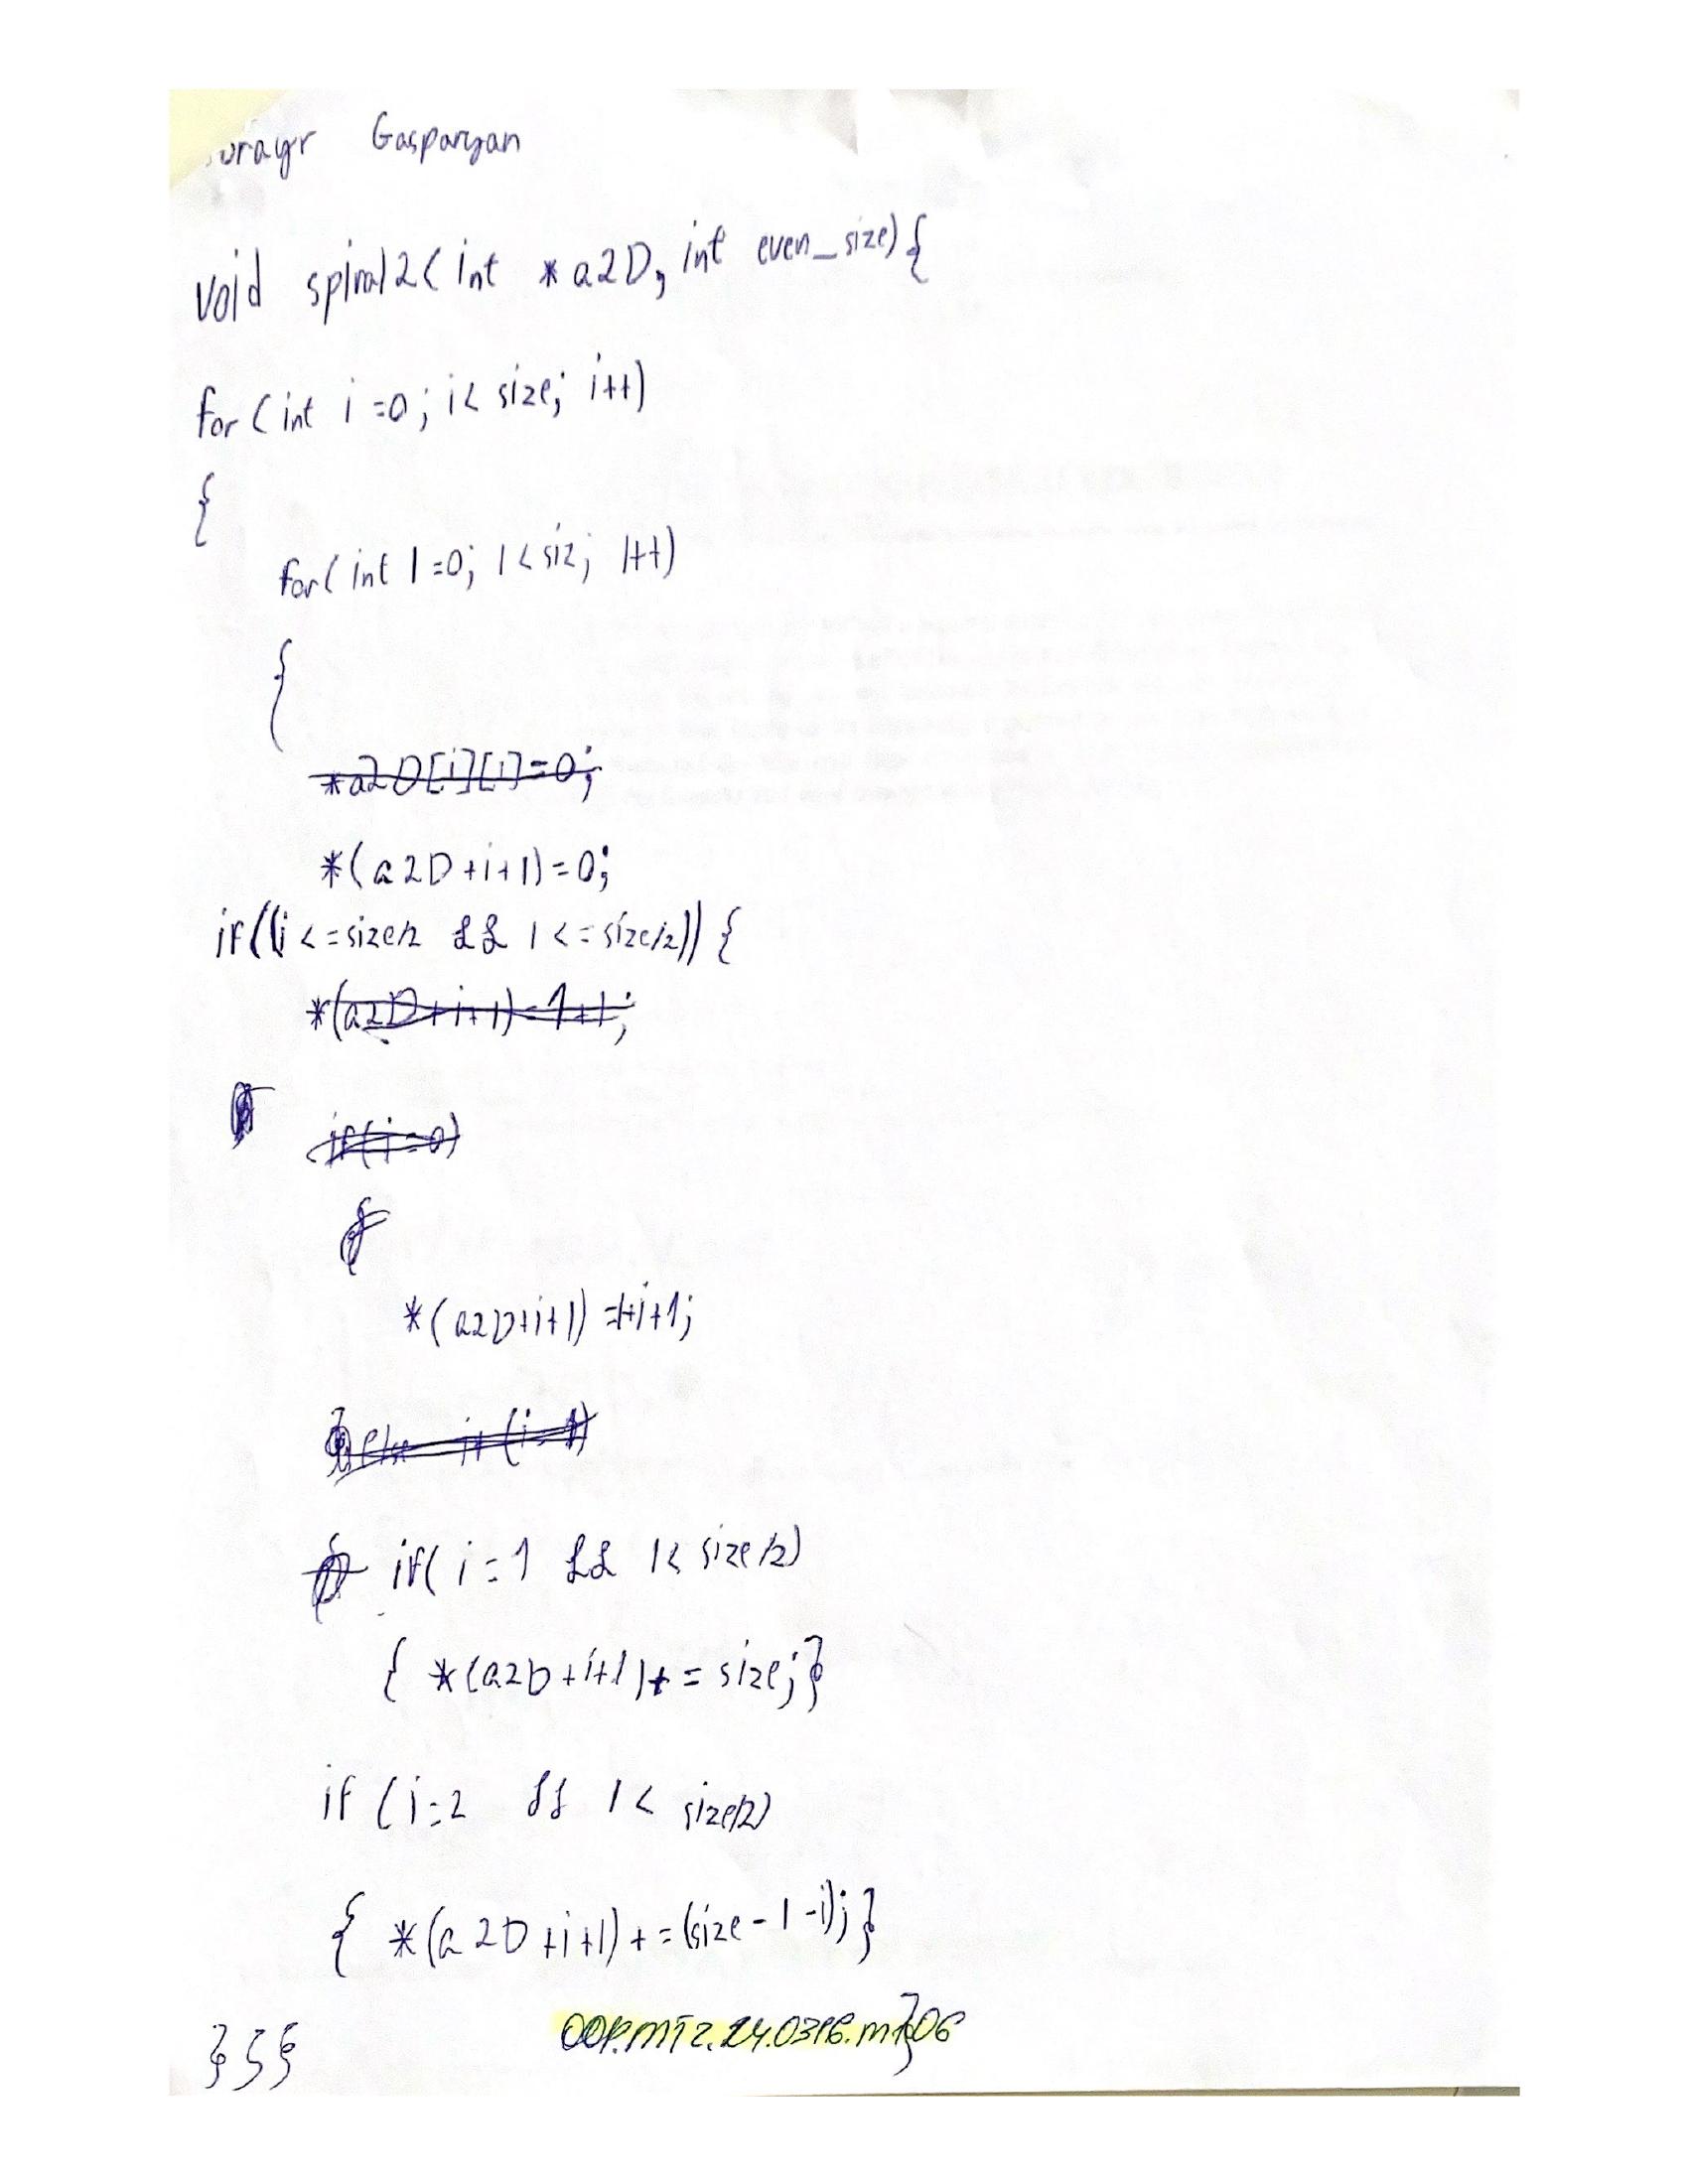 Gasparyan
void spiral2( int *a2D, int even_size){
for (int i=0; i< size; i++)
{
for( int l=0; l<siz; l++)
{
*a2D[i][l]=0;
*(a2D+i+l)=0;
if((i<=size/2 && l<=size/2)) {
*(a2D+i+l)=1+l;
if(i=0)
{
*(a2D+i+l)=l+i+1;
if( i=1 && l< size/2)
{ *(a2D+i+l)+= size;}
if (i=2 && l< size/2)
{ *(a2D+i+l)+=(size-1-i);}
}
}}}